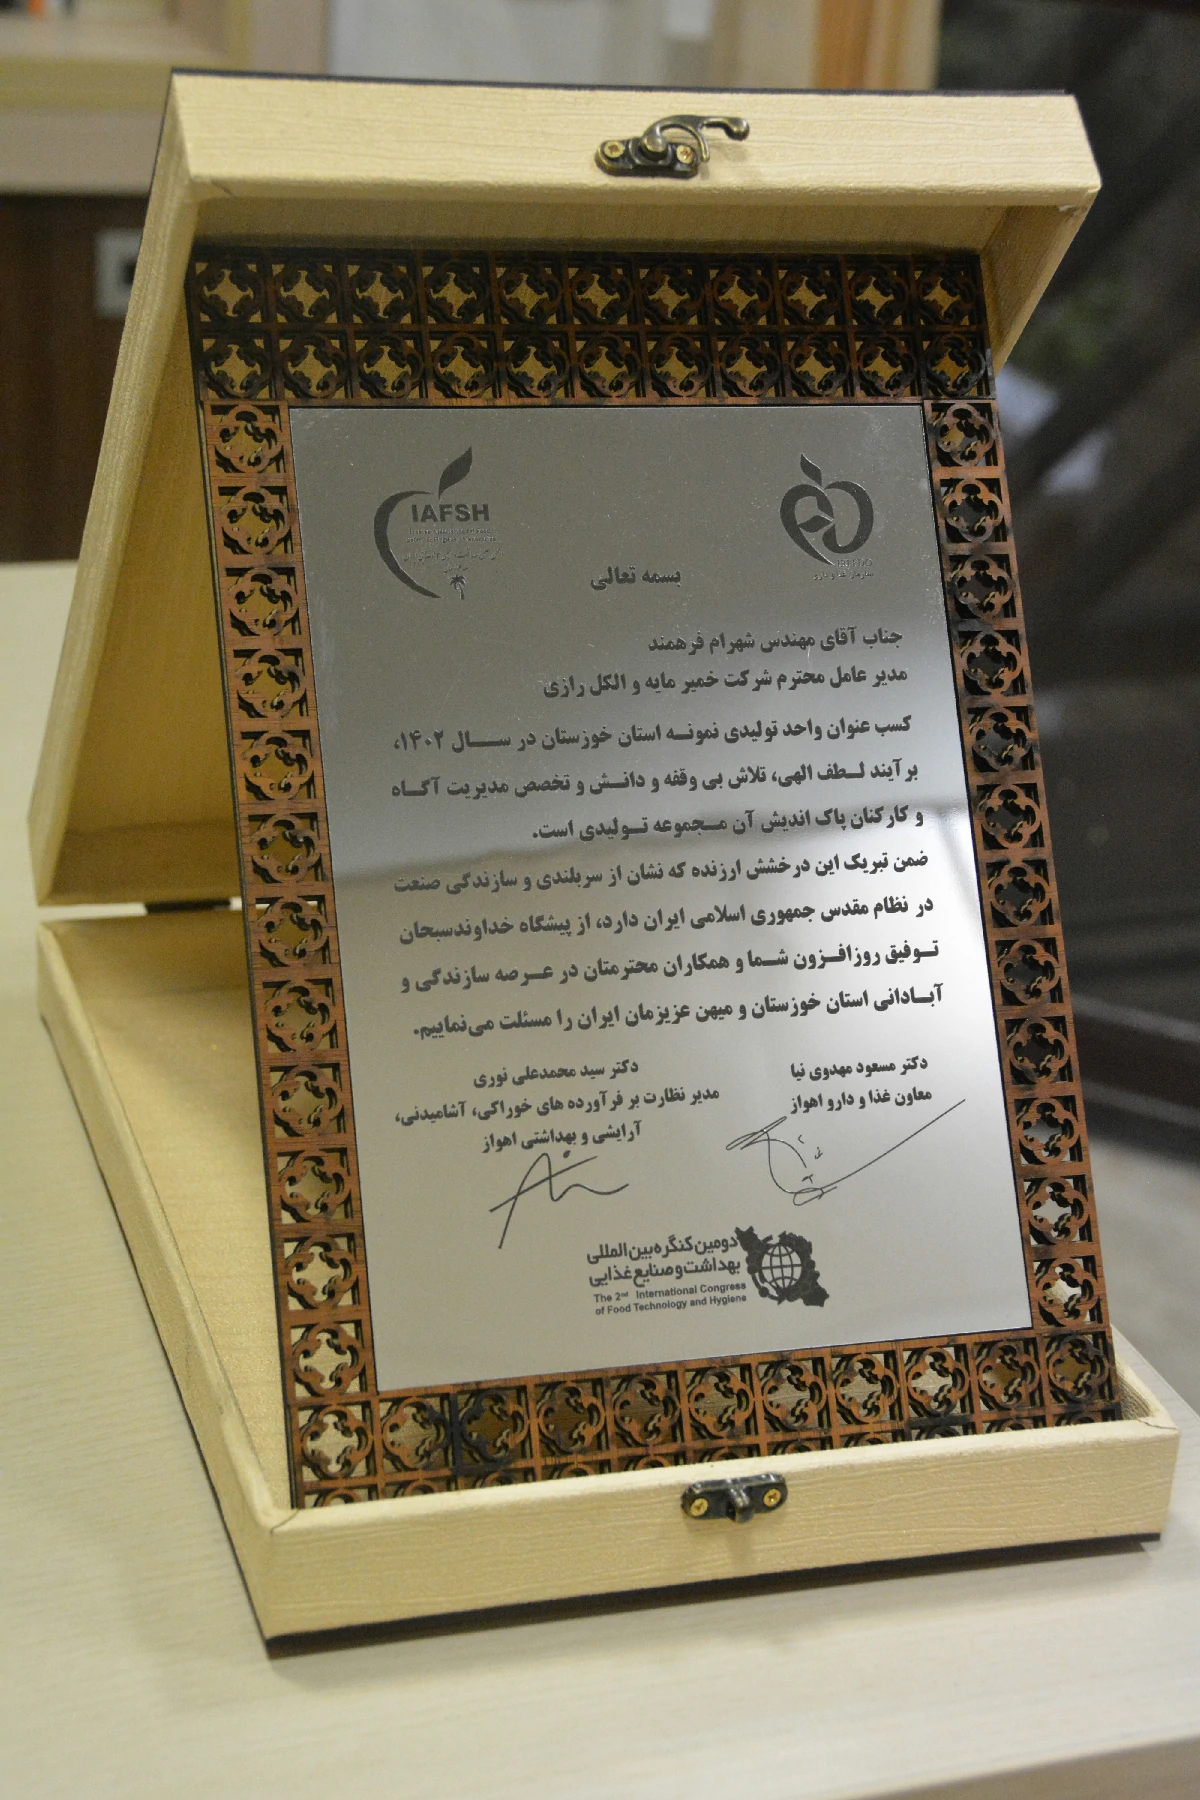 IAFSH
سازمان غذا و دارو
بسمه تعالی
جناب آقای مهندس شهرام فرهمند
مدیر عامل محترم شرکت خمیر مایه و الکل رازی
کسب عنوان واحد تولیدی نمونه استان خوزستان در سال ۱۴۰۲،
برآیند لطف الهی، تلاش بی وقفه و دانش و تخصص مدیریت آگاه
و کارکنان پاک اندیش آن مجموعه تولیدی است.
ضمن تبریک این درخشش ارزنده که نشان از سربلندی و سازندگی صنعت
در نظام مقدس جمهوری اسلامی ایران دارد، از پیشگاه خداوندسبحان
توفیق روزافزون شما و همکاران محترمتان در عرصه سازندگی و
آبادانی استان خوزستان و میهن عزیزمان ایران را مسئلت می‌نماییم.
دکتر مسعود مهدوی نیا
معاون غذا و دارو اهواز
دکتر سید محمدعلی نوری
مدیر نظارت بر فرآورده های خوراکی، آشامیدنی،
آرایشی و بهداشتی اهواز
دومین کنگره بین المللی
بهداشت و صنایع غذایی
The 2nd International Congress
of Food Technology and Hygiene